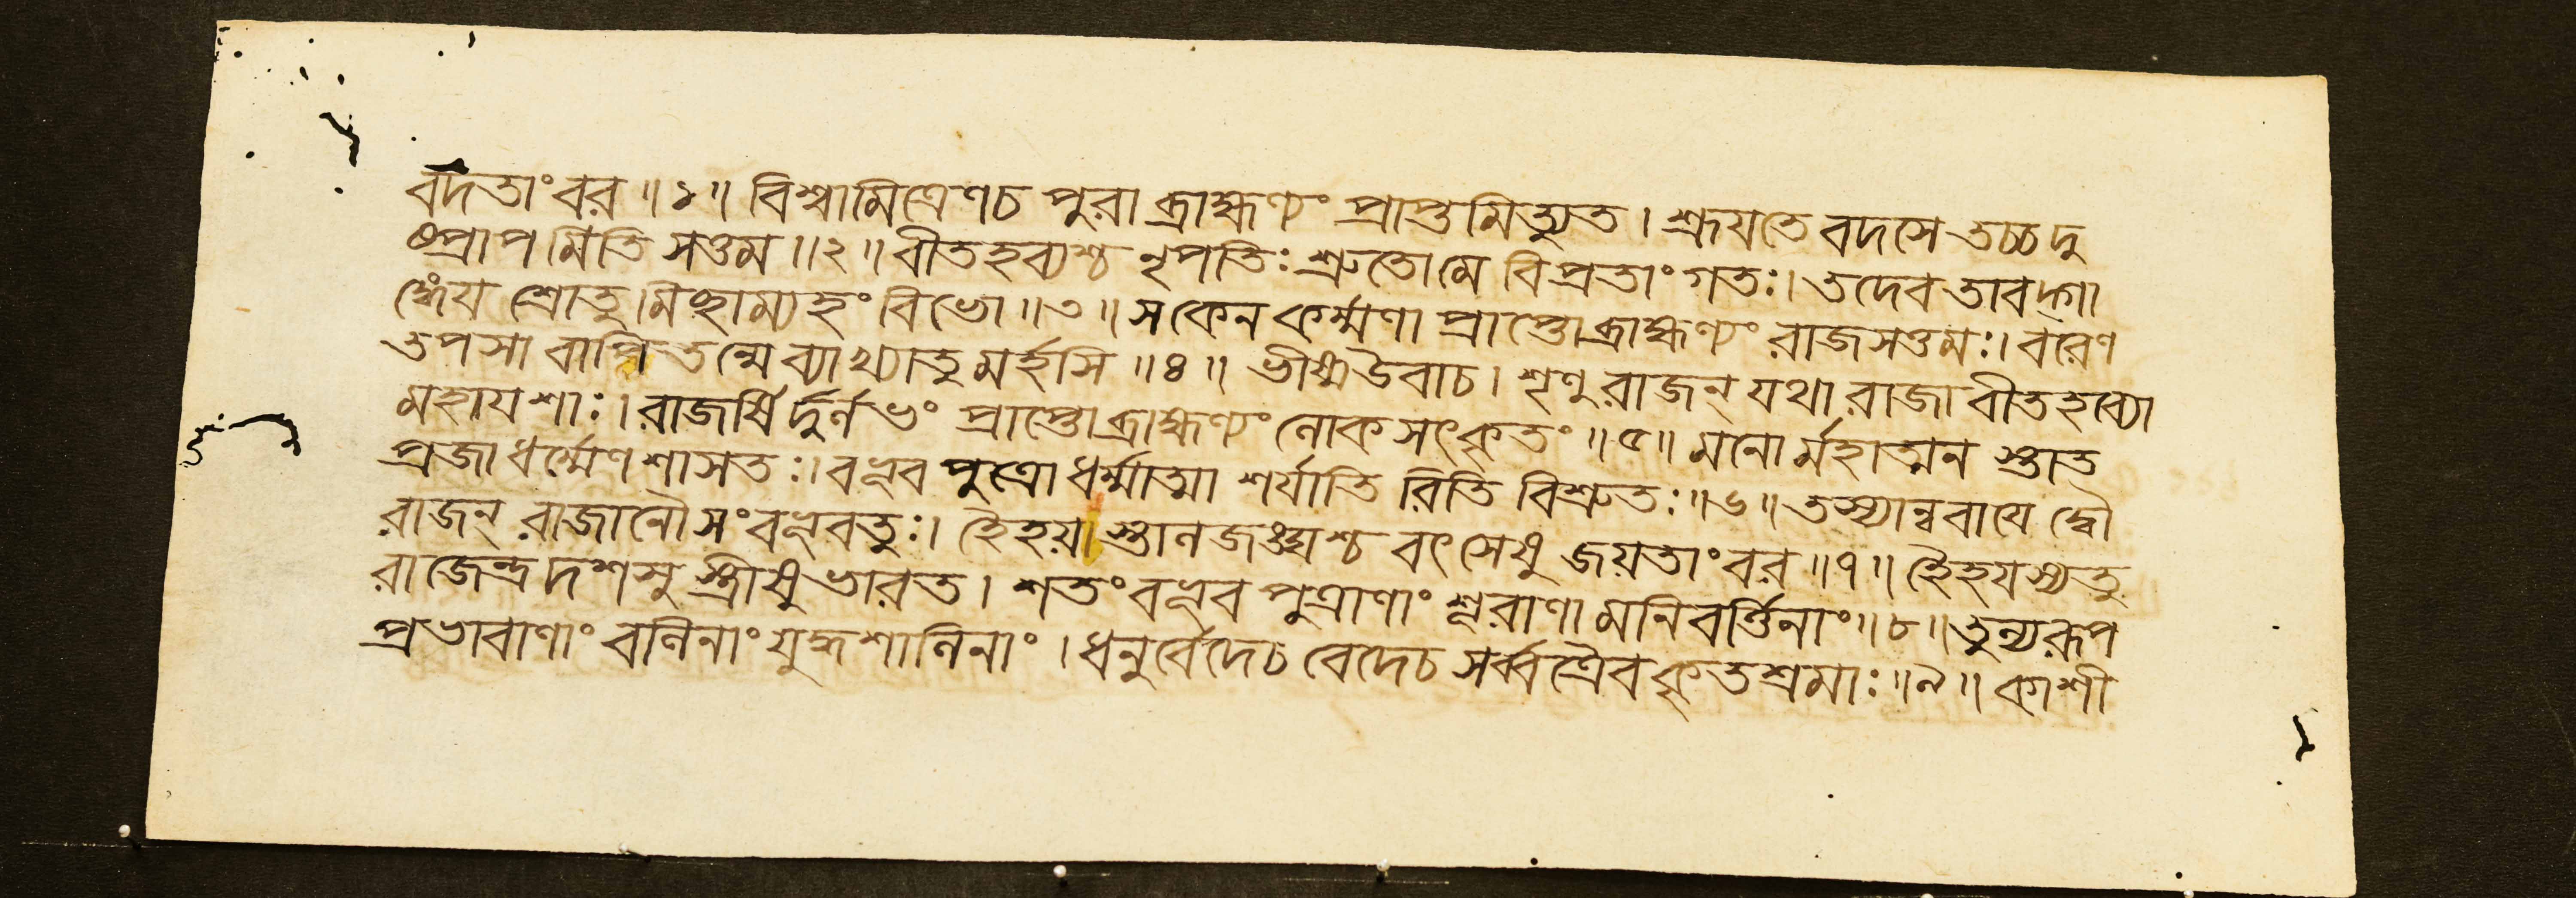 বদতাং বর ॥১॥ বিশ্বামিত্রেণচ পুরা ব্রাহ্মণ্যং প্রাপ্তমিত্যুত । শ্রূযতে বদসে তচ্চ দু
ষ্প্রাপমিতি সত্তম ॥২॥ বীতহব্যশ্চ নৃপতিঃ শ্রুতো মে বিপ্রতাং গতঃ । তদেব তাবদ্গা
ঙ্গেয শ্রোতুমিচ্ছাম্যহং বিভো ॥৩॥ স কেন কর্ম্মণা প্রাপ্তো ব্রাহ্মণ্যং রাজসত্তমঃ । বরেণ
তপসা বাপি তন্মে ব্যাখ্যাতুমর্হসি ॥৪॥ ভীষ্মউবাচ । শৃণু রাজন্ যথা রাজা বীতহব্যো
মহাযশাঃ । রাজর্ষির্দুর্লভং প্রাপ্তো ব্রাহ্মণ্যং লোকসৎকৃতং ॥৫॥ মনোর্মহাত্মন স্তাত
প্রজা ধর্ম্মেণ শাসতঃ । বভূব পুত্রো ধর্ম্মাত্মা শর্যাতি রিতি বিশ্রুতঃ ॥৬॥ তস্যান্ববাযে দ্বৌ
রাজন্ রাজানৌ সংবভূবতুঃ । হৈহয়স্তালজঙ্ঘশ্চ বৎসেষু জয়তাং বর ॥৭॥ হৈহযস্যতু
রাজেন্দ্র দশসু স্ত্রীষু ভারত । শতং বভূব পুত্রাণাং শূরাণামনিবর্ত্তিনাং ॥৮॥ তুল্যরূপ
প্রভাবাণাং বলিনাং যুদ্ধশালিনাং । ধনুর্বেদেচ বেদেচ সর্ব্বত্রৈব কৃতশ্রমাঃ ॥৯॥ কাশী